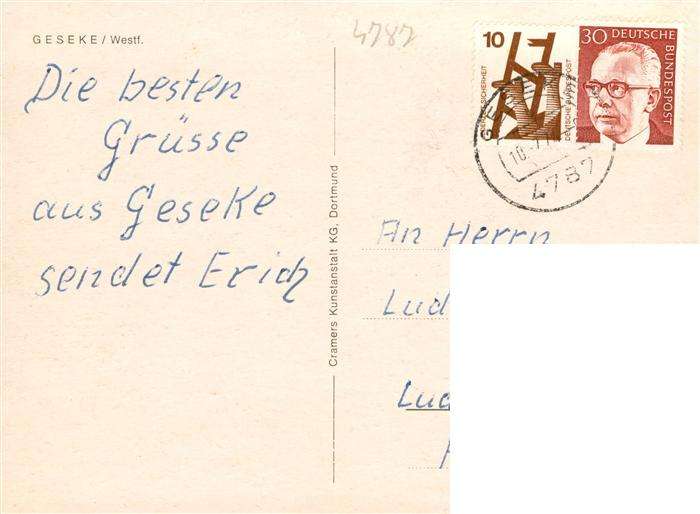 GESEKE / Westf.
4787
Die besten
Grüsse
aus Geseke
sendet Erich
Cramers Kunstanstalt KG, Dortmund
10
DEUTSCHE BUNDESPOST
30 DEUTSCHE
BUNDESPOST
4787
An Herrn
Lud
Lud